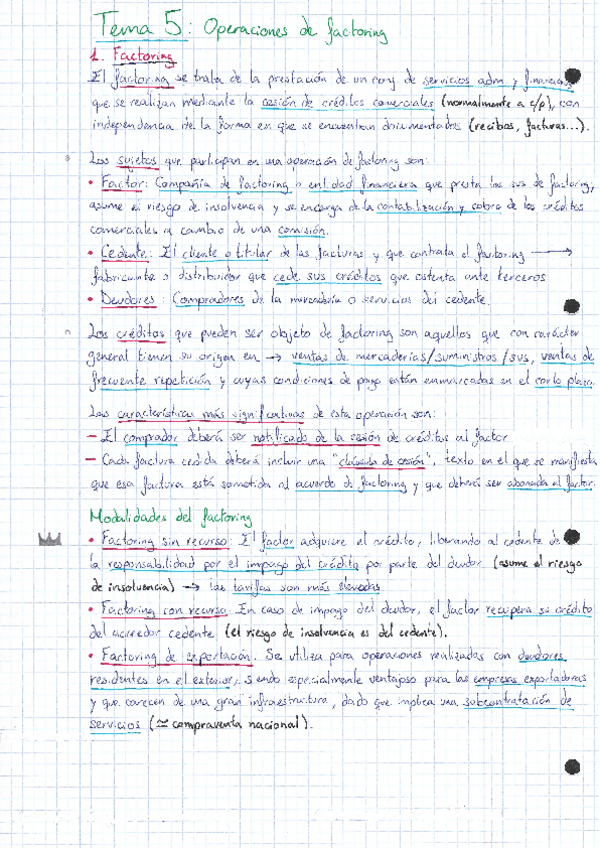 Tema 5: Operaciones de factoring
1. Factoring
El factoring se trata de la prestación de un conj. de servicios adm y financieros
que se realizan mediante la cesión de créditos comerciales (normalmente a c/p), con
independencia de la forma en que se encuentran documentados (recibos, facturas...).
Los sujetos que participan en una operación de factoring son:
• Factor: Compañía de factoring o entidad financiera que presta los svs de factoring,
asume el riesgo de insolvencia y se encarga de la contabilización y cobro de los créditos
comerciales a cambio de una comisión.
• Cedente: El cliente o titular de las facturas y que contrata el factoring →
fabricante o distribuidor que cede sus créditos que ostenta ante terceros
• Deudores: Compradores de la mercadería o servicios del cedente
Los créditos que pueden ser objeto de factoring son aquellos que con carácter
general tienen su origen en → ventas de mercaderías/suministros/svs, ventas de
frecuente repetición y cuyas condiciones de pago están enmarcadas en el corto plazo.
Las características más significativas de esta operación son:
- El comprador deberá ser notificado de la cesión de créditos al factor
- Cada factura cedida deberá incluir una "cláusula de cesión", texto en el que se manifiesta
que esa factura está sometida al acuerdo de factoring y que deberá ser abonada al factor.
Modalidades del factoring
• Factoring sin recurso: El factor adquiere el crédito, liberando al cedente de
la responsabilidad por el impago del crédito por parte del deudor (asume el riesgo
de insolvencia) → las tarifas son más elevadas
• Factoring con recurso: En caso de impago del deudor, el factor recupera su crédito
del acreedor cedente (el riesgo de insolvencia es del cedente).
• Factoring de exportación: Se utiliza para operaciones realizadas con deudores
residentes en el exterior, siendo especialmente ventajoso para las empresas exportadoras
y que carecen de una gran infraestructura, dado que implica una subcontratación de
servicios (≃ compraventa nacional).